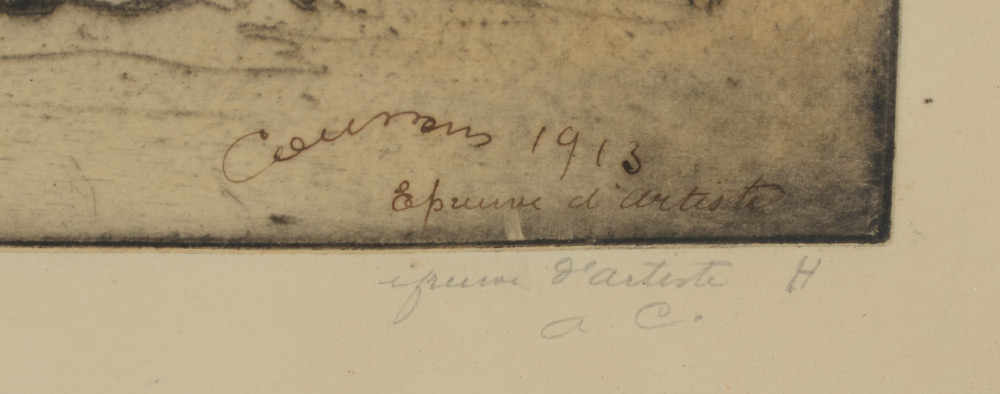 Coussens 1913
Epreuve d'artiste
epreuve d'artiste H
a C.